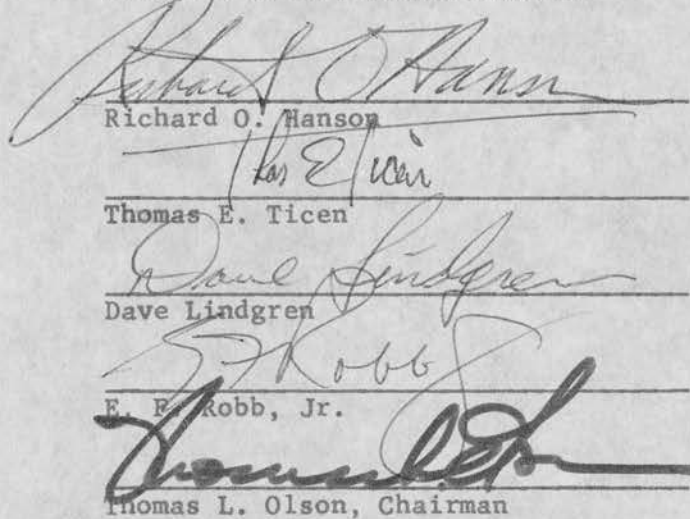 Richard O Hanson
Richard O. Hanson
Thos E Ticen
Thomas E. Ticen
Dave Lindgren
Dave Lindgren
E F Robb Jr
E. F. Robb, Jr.
Thomas L. Olson
Thomas L. Olson, Chairman